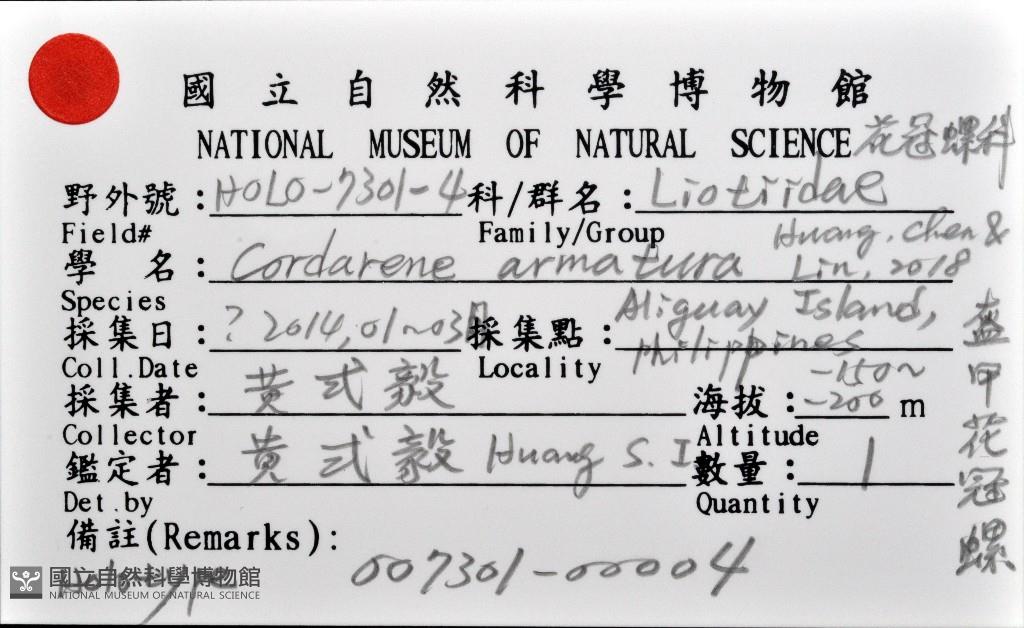 國立自然科學博物館
NATIONAL MUSEUM OF NATURAL SCIENCE 花冠螺科
野外號: HOLO-7301-4 科/群名: Liotiidae
Field# Family/Group
學名: Cordarene armatura Huang, Chen & Lin, 2018
Species
採集日: ? 2014,01~03月 採集點: Aliguay Island, philippines
Coll.Date Locality
採集者: 黃式毅 海拔: -150~-200 m
Collector Altitude
鑑定者: 黃式毅 Huang S. I 數量: 1
Det.by Quantity
備註(Remarks):
Holotype 007301-00004
盔甲花冠螺
國立自然科學博物館
NATIONAL MUSEUM OF NATURAL SCIENCE